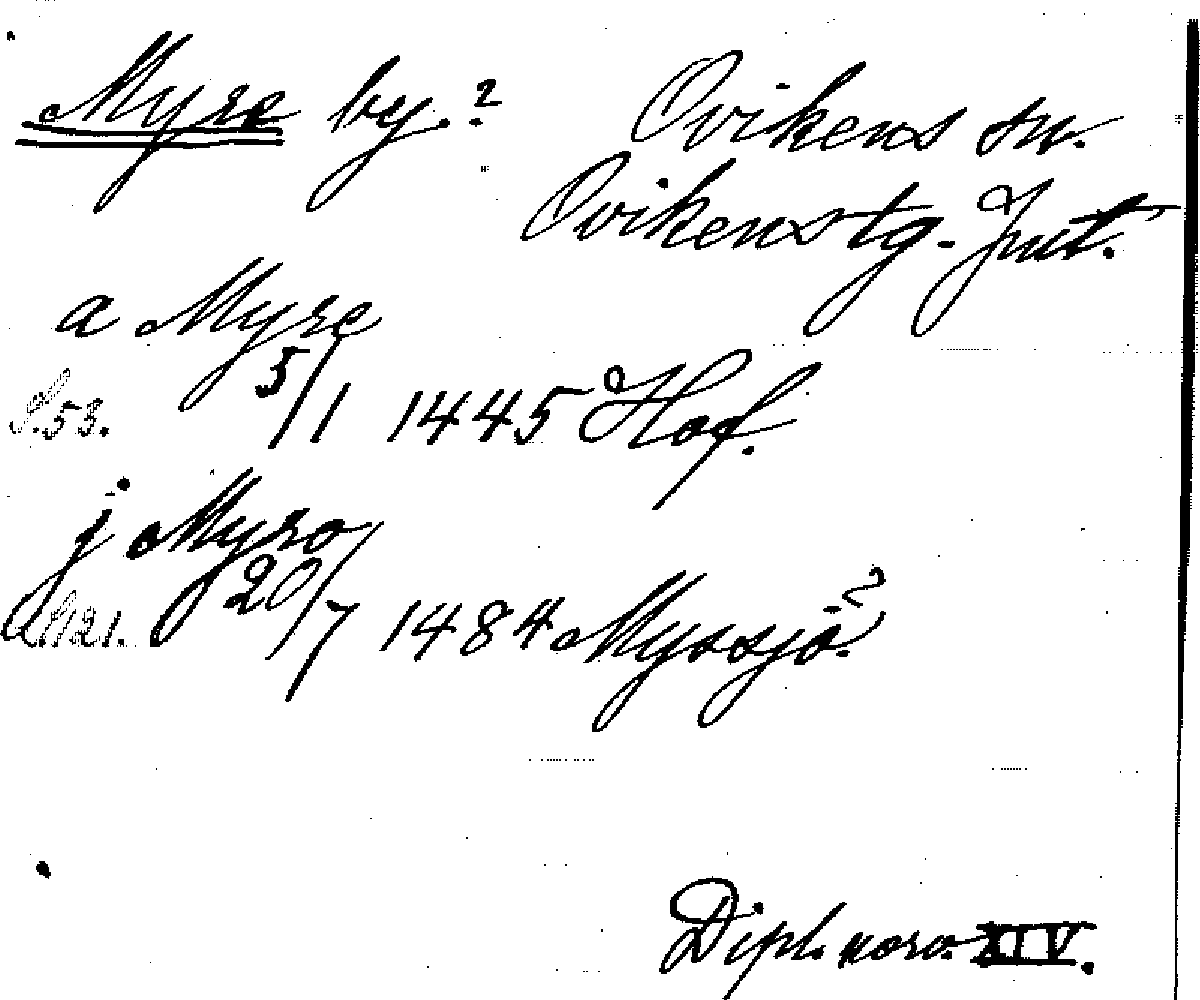 Myre by.? Ovikens sn.
Ovikens tg. Jmt.
a Myre
S.53. 5/1 1445 Hof.
j Myro
S.121. 20/7 1484 Myssjö.?
Dipl. norv. XIV.